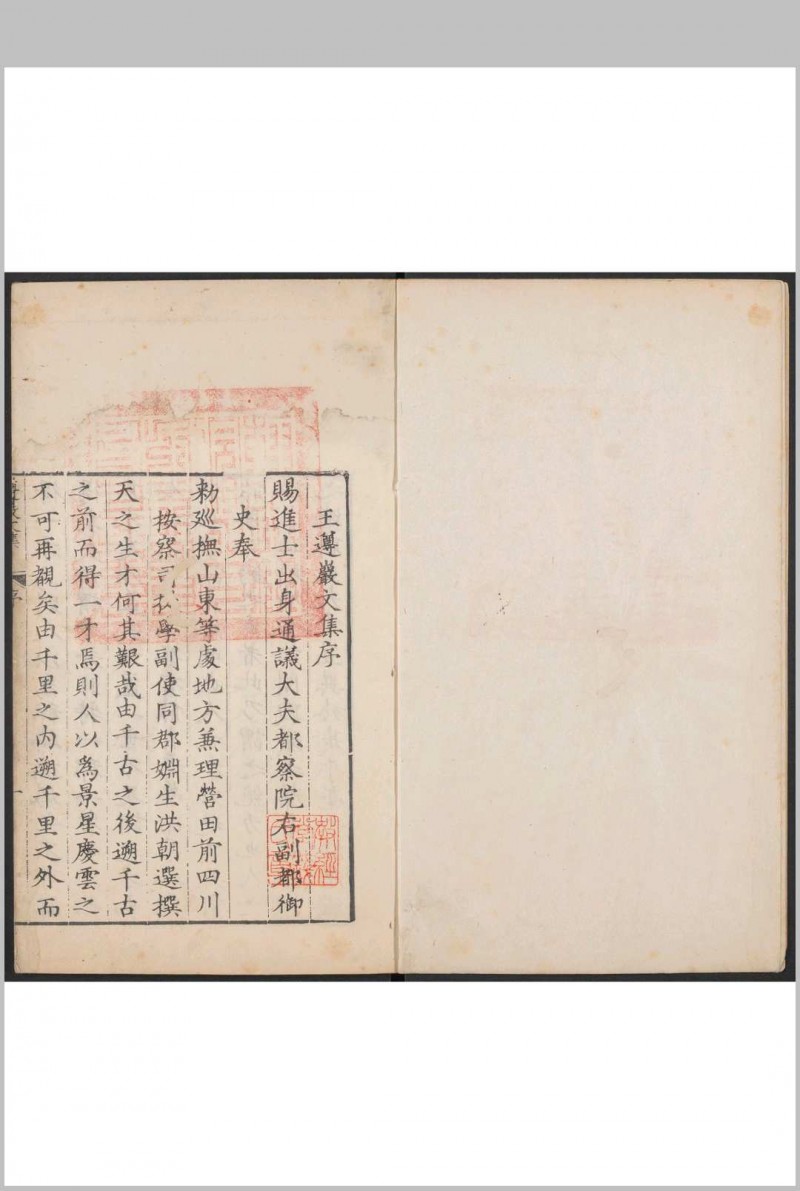 王遵巖文集序
賜進士出身通議大夫都察院右副都御
史奉
勑廵撫山東等處地方兼理營田前四川
按察司㧞學副使同郡婣生洪朝選撰
天之生才何其艱哉由千古之後遡千古
之前而得一才焉則人以為景星慶雲之
不可再覩矣由千里之内遡千里之外而
序
一